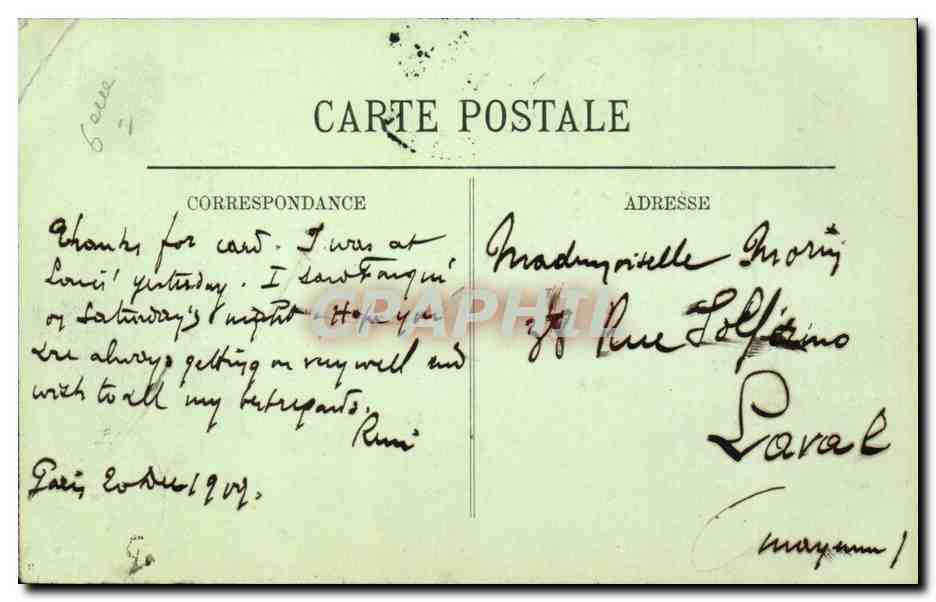 6eme
CARTE POSTALE
CORRESPONDANCE
Thanks for card. I was at
Louis' yesterday. I saw
on Saturday's night. Hope you
are always getting on very well and
wish to all my best regards.
René
Paris 20 Dec 1909.
ADRESSE
Mademoiselle Morin
38 Rue Solférino
Laval
(Mayenne)
GRAPHIL